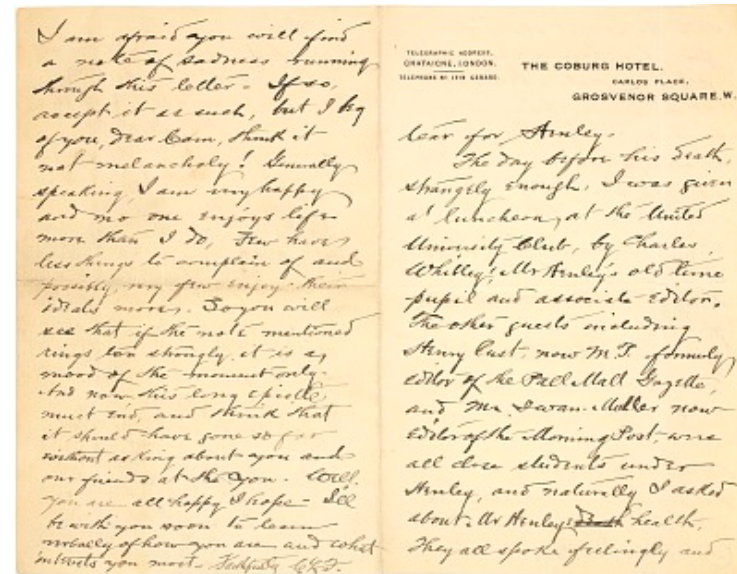 I am afraid you will find
a note of sadness running
through this letter. If so,
accept it as such, but I beg
of you, Dear Cam, think it
not melancholy! Generally
speaking, I am very happy
and no one enjoys life
more than I do, Few have
less things to complain of and
possibly, very few enjoy their
ideals more. So you will
see that if the note mentioned
rings too strongly, it is a
mood of the moment only.
And now this long epistle
must end, and think that
it should have gone so far
without asking about you and
our friends at the You. Well
you are all happy I hope - I'll
be with you soon to learn
verbally of how you are and what
interests you most - Faithfully
TELEGRAPHIC ADDRESS,
CRATAIGNE, LONDON.
TELEPHONE Nº GERARD.
THE COBURG HOTEL.
CARLOS PLACE,
GROSVENOR SQUARE, W.
tear for Henley.
The day before his death,
strangely enough, I was given
a luncheon, at the United
University Club, by Charles
Whitley, Mr Henley's old time
pupil and associate Editor.
The other guests including
Henry Cust, now M.P. formerly
editor of the Pall Mall Gazette,
and Mr Iwan-Muller now
Editor of the Morning Post, were
all close students under
Henley, and naturally I asked
about Mr Henley's health.
They all spoke feelingly and